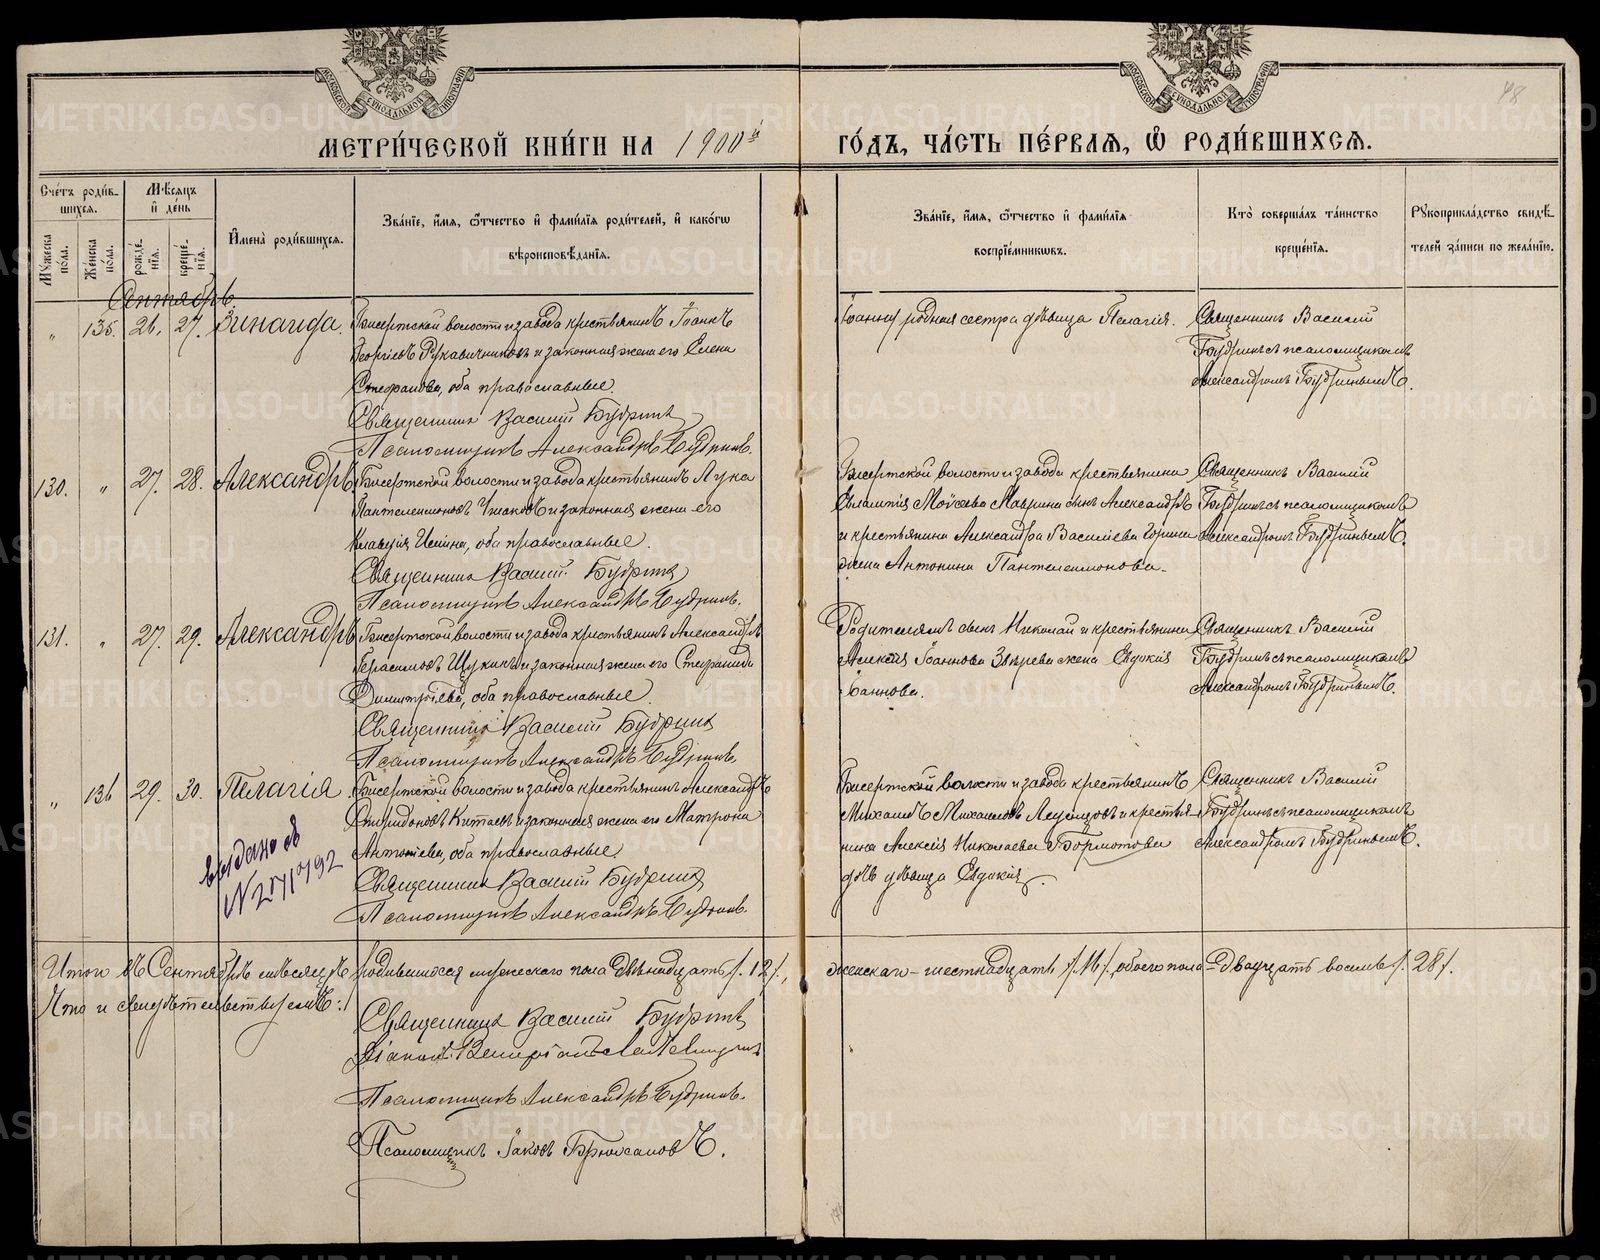 МЕТРИ́ЧЕСКОЙ КНИ́ГИ НА 1900й
ГО́ДЪ, ЧА́СТЬ ПЕ́РВАЯ, Ѡ҆ РОДИ́ВШИХСЯ.
48
Сче́тъ роди́в-
шихся.
Мѣ́сяцъ
и҆ де́нь
Мꙋ́жеска по́ла.
Же́нска по́ла.
рожде́-нїя.
креще́-нїя.
И҆мена̀ роди́вшихся.
Зва́нїе, и҆́мя, ѻ҆́тчество и҆ фами́лїя роди́телей, и҆ како́гѡ
вѣроисповѣ́данїя.
Зва́нїе, и҆́мя, ѻ҆́тчество и҆ фами́лїя
воспрїе́мниковъ.
Кто̀ соверша́лъ та́инство
креще́нїя.
Рꙋкоприкла́дство свидѣ́-
телей за́писи по жела́нїю.
Сентябрь.
" 135. 26. 27. Зинаида.
Бисертской волости и завода крестьянинъ Іоаннъ
Георгіевъ Рукавичниковъ и законная жена его Елена
Стефанова, оба православные.
Священникъ Василій Будринъ
Псаломщикъ Александръ Будринъ.
Іоанна родная сестра дѣвица Пелагія.
Священникъ Василій
Будринъ съ псаломщикомъ
Александромъ Будринымъ.
130. " 27. 28. Александръ.
Бисертской волости и завода крестьянинъ Лука
Пантелеимоновъ и законная жена его
Клавдія оба православные.
Священникъ Василій Будринъ
Псаломщикъ Александръ Будринъ.
Бисертской волости и завода крестьянина
Евлампія Моѵсеева Маврина сынъ Александръ
и крестьянина Александра Василіева
жена Антонина Пантелеимонова.
Священникъ Василій
Будринъ съ псаломщикомъ
Александромъ Будринымъ.
131. " 27. 29. Александръ
Бисертской волости и завода крестьянинъ Александръ
Герасимовъ Щукинъ и законная жена его Стефанида
Димитріева, оба православные.
Священникъ Василій Будринъ
Псаломщикъ Александръ Будринъ.
Родителямъ сынъ Николай и крестьянина
Алексія Іоаннова Звѣрева жена Евдокія
Іоаннова.
Священникъ Василій
Будринъ съ псаломщикомъ
Александромъ Будринымъ.
" 136 29. 30. Пелагія.
Бисертской волости и завода крестьянинъ Александръ
Спиридоновъ Китаевъ и законная жена его Матрона
Антоніева, оба православные.
Священникъ Василій Будринъ
Псаломщикъ Александръ Будринъ.
выдано
Бисертской волости и завода крестьянинъ
Михаилъ Михаиловъ и крестья-
нина Алексія Николаева Бормотова
дочь дѣвица Евдокія.
Священникъ Василій
Будринъ съ псаломщикомъ
Александромъ Будринымъ.
Итого въ Сентябрѣ мѣсяцѣ родившихся мужескаго пола двѣнадцать /. 12/.,
женскаго - шестнадцать /.16/, обоего пола - двадцать восемь /. 28/.
Что и свидѣтельствуемъ:
Священникъ Василій Будринъ
Діаконъ
Псаломщикъ Александръ Будринъ.
Псаломщикъ Іаковъ Брюхановъ.